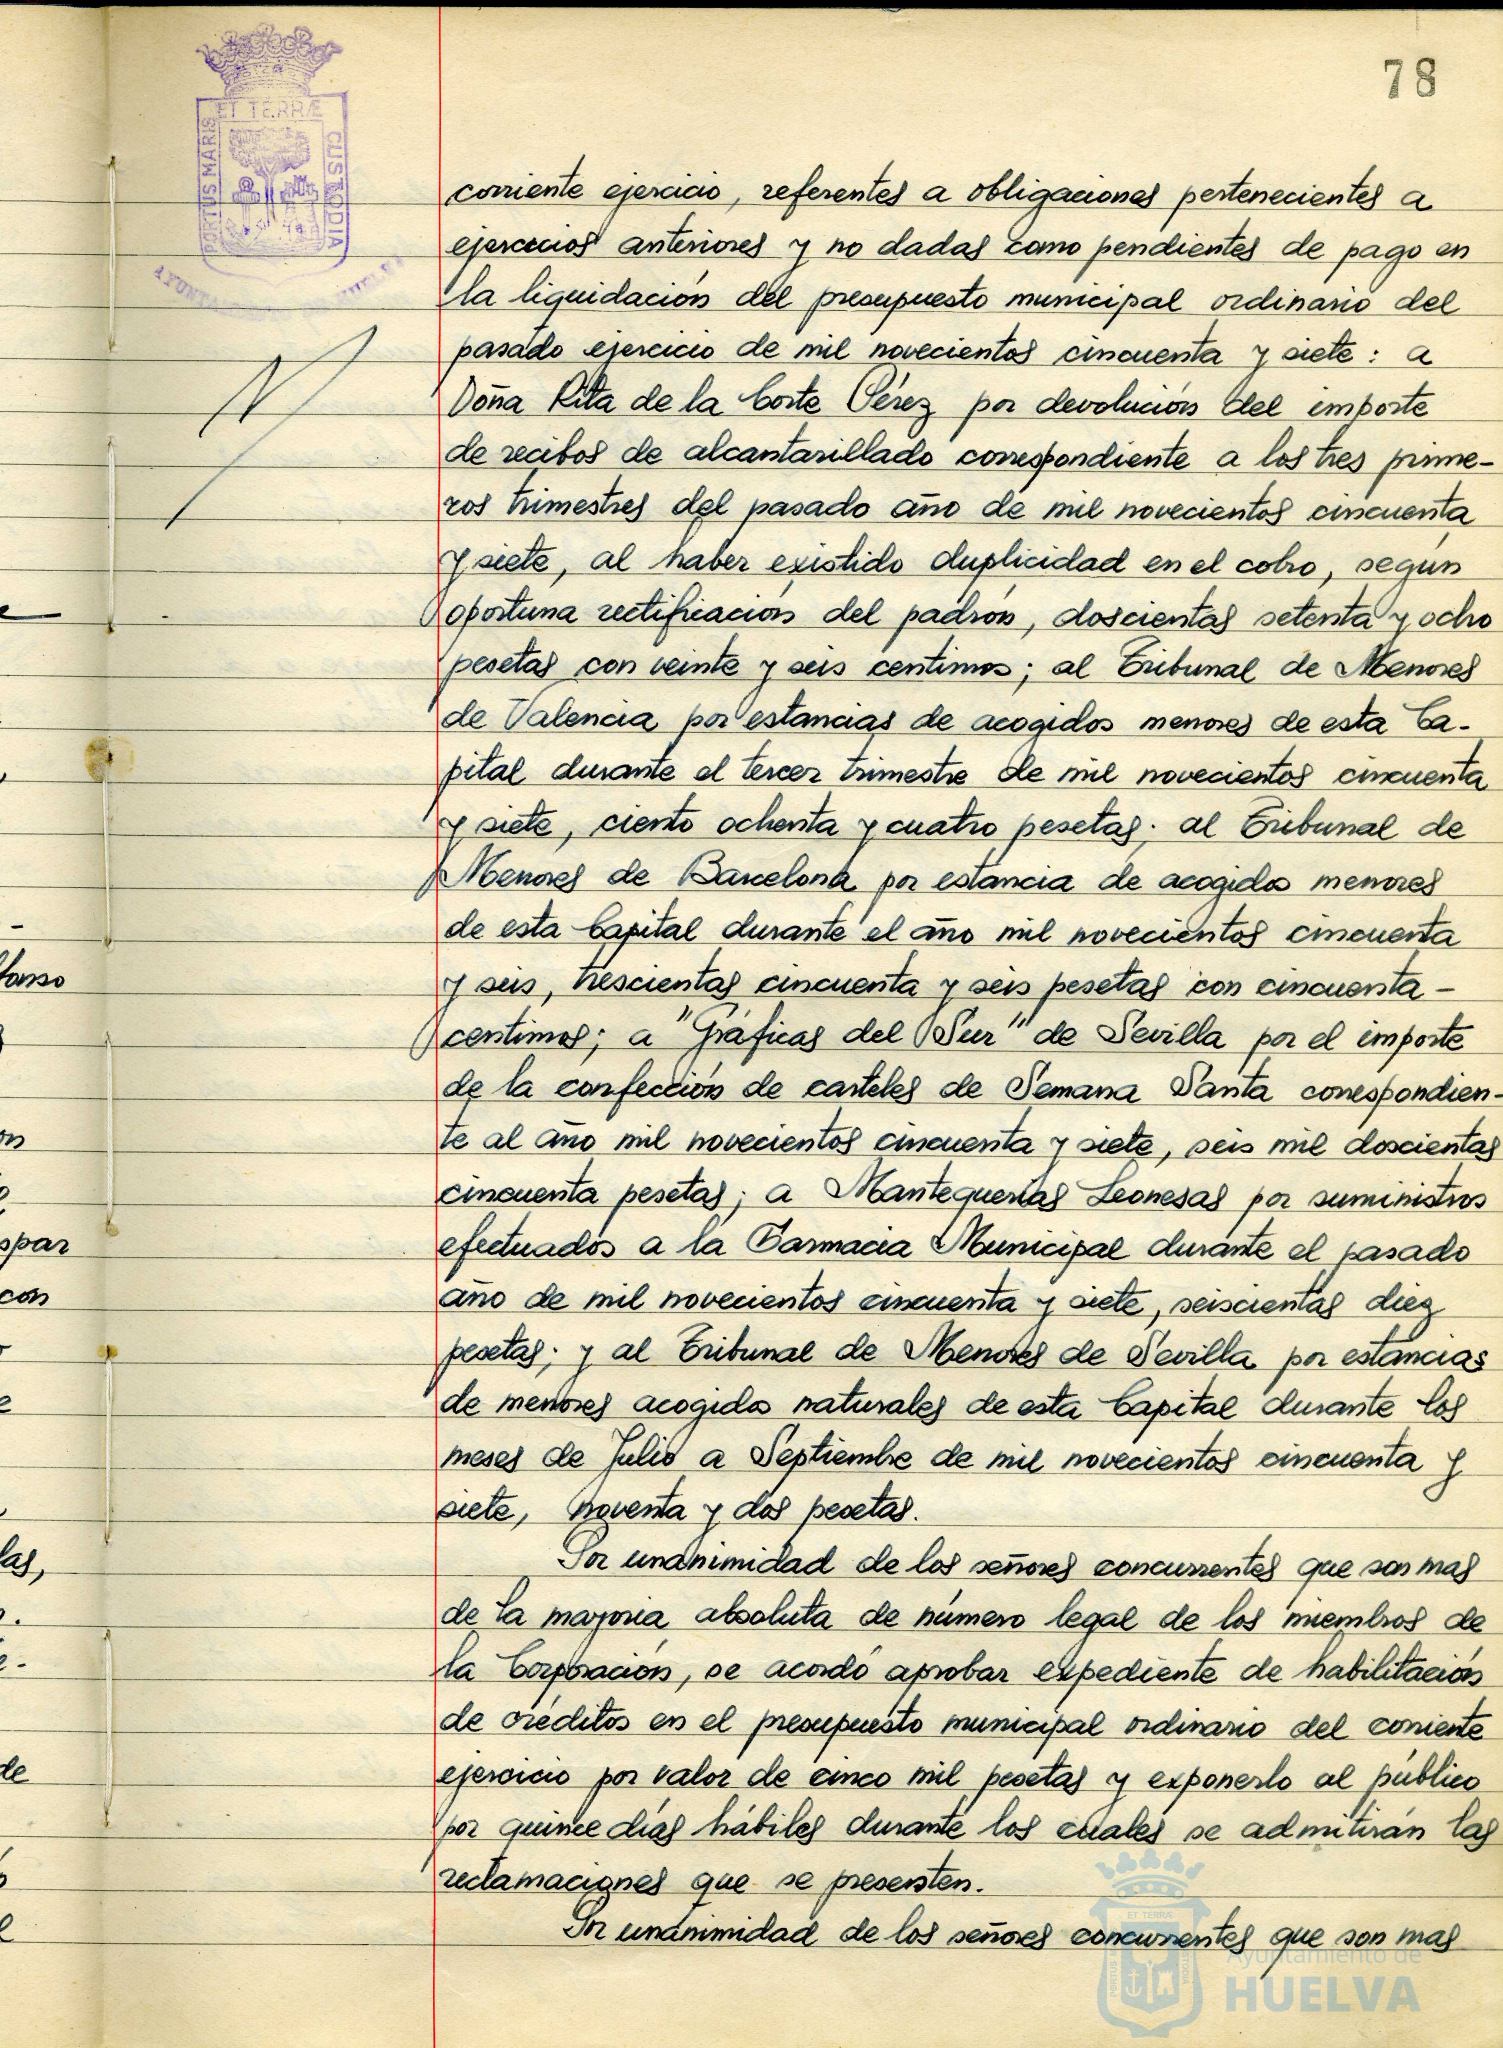 78
ET TERRÆ
PORTUS MARIS
CUSTODIA
corriente ejercicio, referentes a obligaciones pertenecientes a
ejercicios anteriores y no dadas como pendientes de pago en
la liquidación del presupuesto municipal ordinario del
pasado ejercicio de mil novecientos cincuenta y siete: a
Doña Rita de la Corte Pérez por devolución del importe
de recibos de alcantarillado correspondiente a los tres prime-
ros trimestres del pasado año de mil novecientos cincuenta
y siete, al haber existido duplicidad en el cobro, según
oportuna rectificación del padrón, doscientas setenta y ocho
pesetas con veinte y seis centimos; al Tribunal de Menores
de Valencia por estancias de acogidos menores de esta Ca-
pital durante el tercer trimestre de mil novecientos cincuenta
y siete, ciento ochenta y cuatro pesetas; al Tribunal de
Menores de Barcelona por estancia de acogidos menores
de esta Capital durante el año mil novecientos cincuenta
y seis, trescientas cincuenta y seis pesetas con cincuenta -
centimos; a "Gráficas del Sur" de Sevilla por el importe
de la confección de carteles de Semana Santa correspondien-
te al año mil novecientos cincuenta y siete, seis mil doscientas
cincuenta pesetas; a Mantequerías Leonesas por suministros
efectuados a la Farmacia Municipal durante el pasado
año de mil novecientos cincuenta y siete, seiscientas diez
pesetas; y al Tribunal de Menores de Sevilla por estancias
de menores acogidos naturales de esta Capital durante los
meses de Julio a Septiembre de mil novecientos cincuenta y
siete, noventa y dos pesetas.
Por unanimidad de los señores concurrentes que son mas
de la mayoria absoluta de número legal de los miembros de
la Corporación, se acordó aprobar expediente de habilitación
de créditos en el presupuesto municipal ordinario del corriente
ejercicio por valor de cinco mil pesetas y exponerlo al público
por quince días hábiles durante los cuales se admitirán las
reclamaciones que se presenten.
Por unanimidad de los señores concurrentes que son mas
Ayuntamiento de
HUELVA